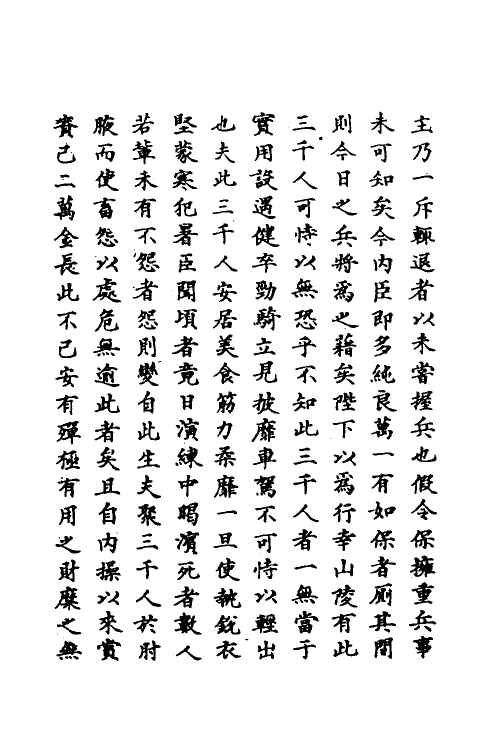 主乃一斥輒退者以未嘗握兵也假令保擁重兵事
未可知矣今内臣即多純良萬一有如保者厠其間
則今日之兵將爲之藉矣陛下以爲行幸山陵有此
三千人可恃以無恐乎不知此三千人者一無當于
實用設遇健卒勁騎立見披靡車駕不可恃以輕出
也夫此三千人安居美食筋力柔靡一旦使執銳衣
堅蒙寒犯暑臣聞頃者竟日演練中暍瀕死者數人
若輩未有不怨者怨則變自此生夫聚三千人於肘
腋而使畜怨以處危無逾此者矣且自内操以來賞
賚已二萬金長此不已安有殫極有用之財糜之無